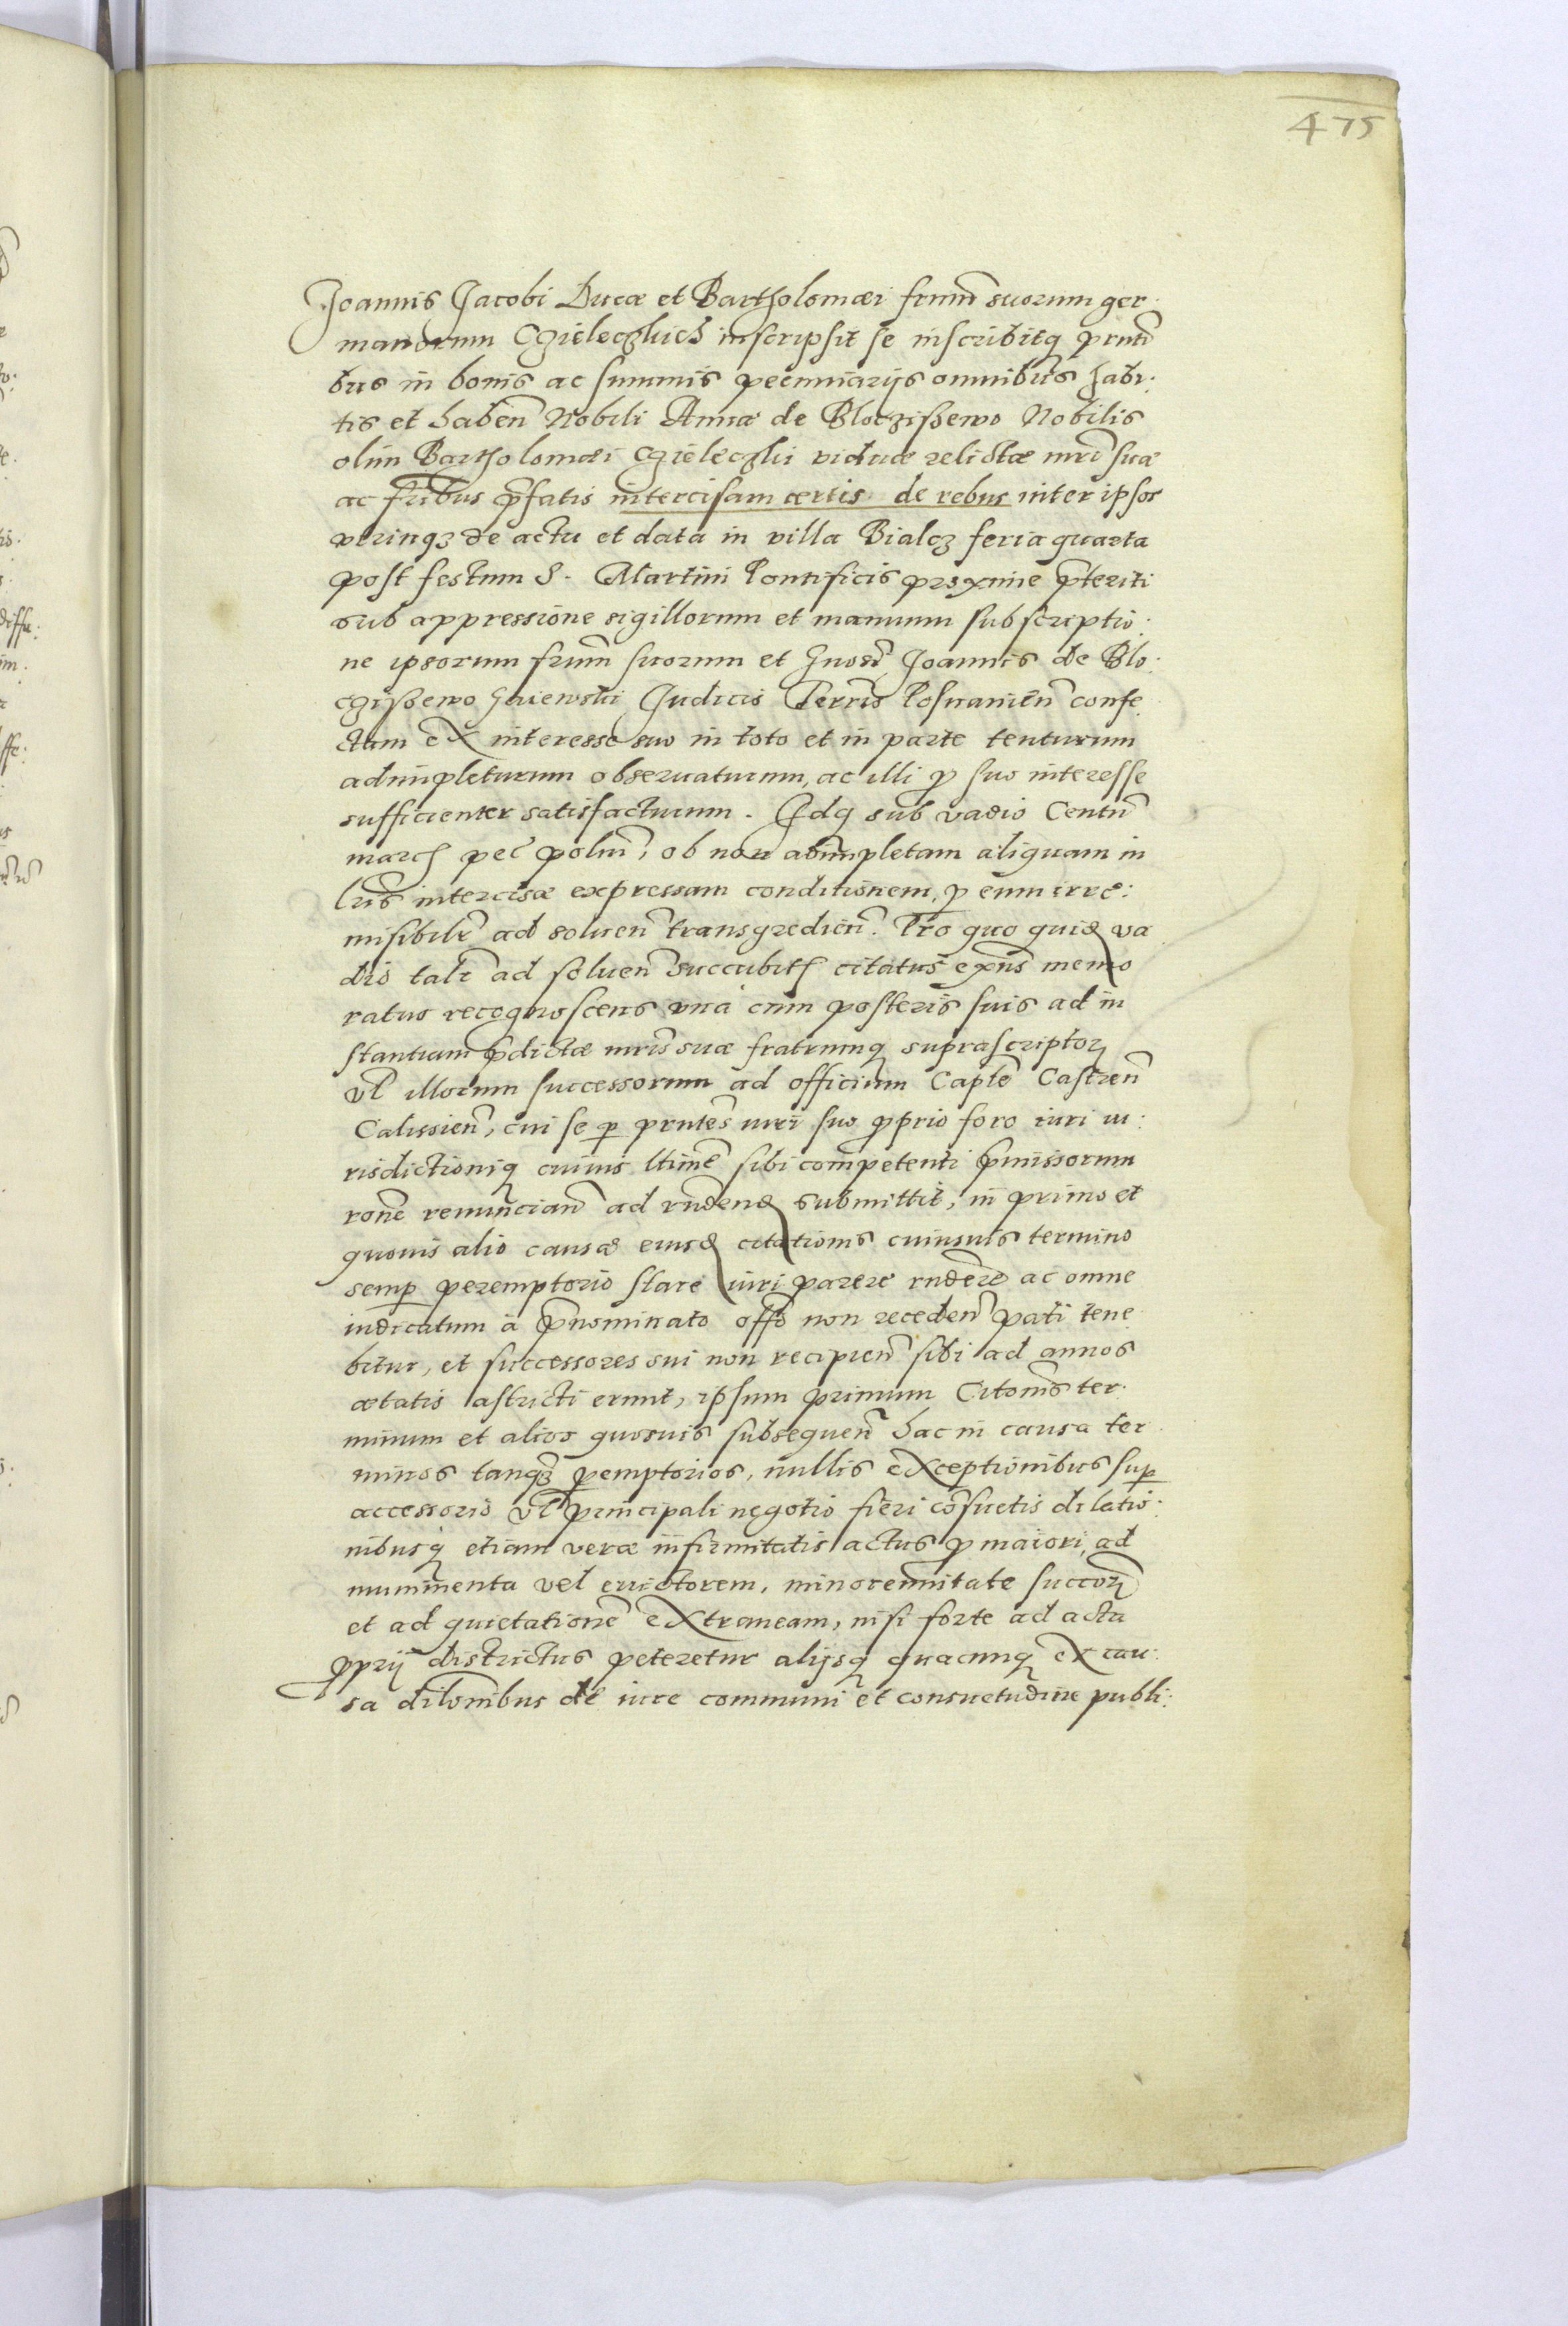 475
Joannis Jacobi Lucæ et Bartholomæi frum̃ suorum ger:
manorum Czieleczkich inscripsit se inscribitq prnti
bus in bonis ac summis pecuniarijs omnibus habi:
tis et haben̄ Nobili Annæ de Bloczissewo Nobilis
olim Bartholomæi Czieleczki viduæ relictæ mri suæ
ac fribus p̄fatis intercisam certis de rebus inter ipsos
vtrinqz de actu et data in villa Bialcz feria quarta
post festum S. Martini Pontificis proxime p̄teriti
sub appressione sigillorum et manuum subscriptio:
ne ipsorum frum̃ suorum et Gnosi Joannis de Blo:
czissewo Gaiewski Judicis Terris Posnanien̄ confe
ctam ex interesse suo in toto et in parte tenturum
adimpleturum obseruaturum, ac illi p suo interesse
sufficienter satisfacturum. Idq sub vadio Centũ
march pec̄ polni, ob non adimpletam aliquam in
lris intercisæ expressam conditionem, p eum irre:
misibilr̄ ad soluen̄ transgredien̄. Pro quo quid va
dio tali ad soluen̄ succubith citatus exñs memo
ratus recognoscens vna cum posteris suis ad in
stantiam p̄dictæ mris suæ fratrumq suprascriptor
vl̄ illorum successorum ad officium Capłe Castren̄
Calissien̄, cui se p prntes iuri suo proprio foro iuri iu:
risdictioniq cuiuis ltime sibi competenti p̄missorum
rone renuncian̄ ad rnden̄d submittit, in primo et
quouis alio causæ eiusd citationis cuiusuis termino
semp peremptorio stare iuri parere rndere ac omne
iudicatum à p̄nominato offo non receden̄ pati tene
bitur, et successores sui non recipien̄ sibi ad annos
ætatis astricti erunt, ipsum primum Citonis ter:
minum et alios quosuis subsequen̄ hac in causa ter
minos tanqz pemptorios, nullis exceptionibus sup
accessorio vl̄ principali negotio fieri consuetis dilatio:
nibusq etiam veræ infirmitatis actus p maiori, ad
munimenta vel euictorem, minorennitate succor
et ad quietationē extraneam, nisi forte ad acta
proprij districtus peteretur alijsq quacunq ex cau:
sa dilonibus de iure communi et consuetudine publi: